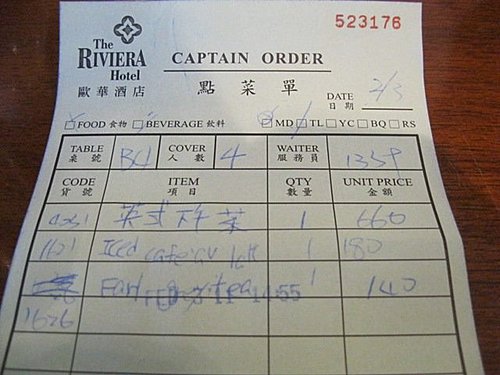 523176
The
RIVIERA
Hotel
CAPTAIN ORDER
歐華酒店
點菜單
DATE
日期 2/3
FOOD 食物 BEVERAGE 飲料 MD TL YC BQ RS
TABLE COVER WAITER
桌號 B4 人數 4 服務員 1339
CODE ITEM QTY UNIT PRICE
貨號 項目 數量 金額
英式下午茶 1 660
1621 Iced cafe au lait 1 180
Earl grey tea 1 140
14:55
1626